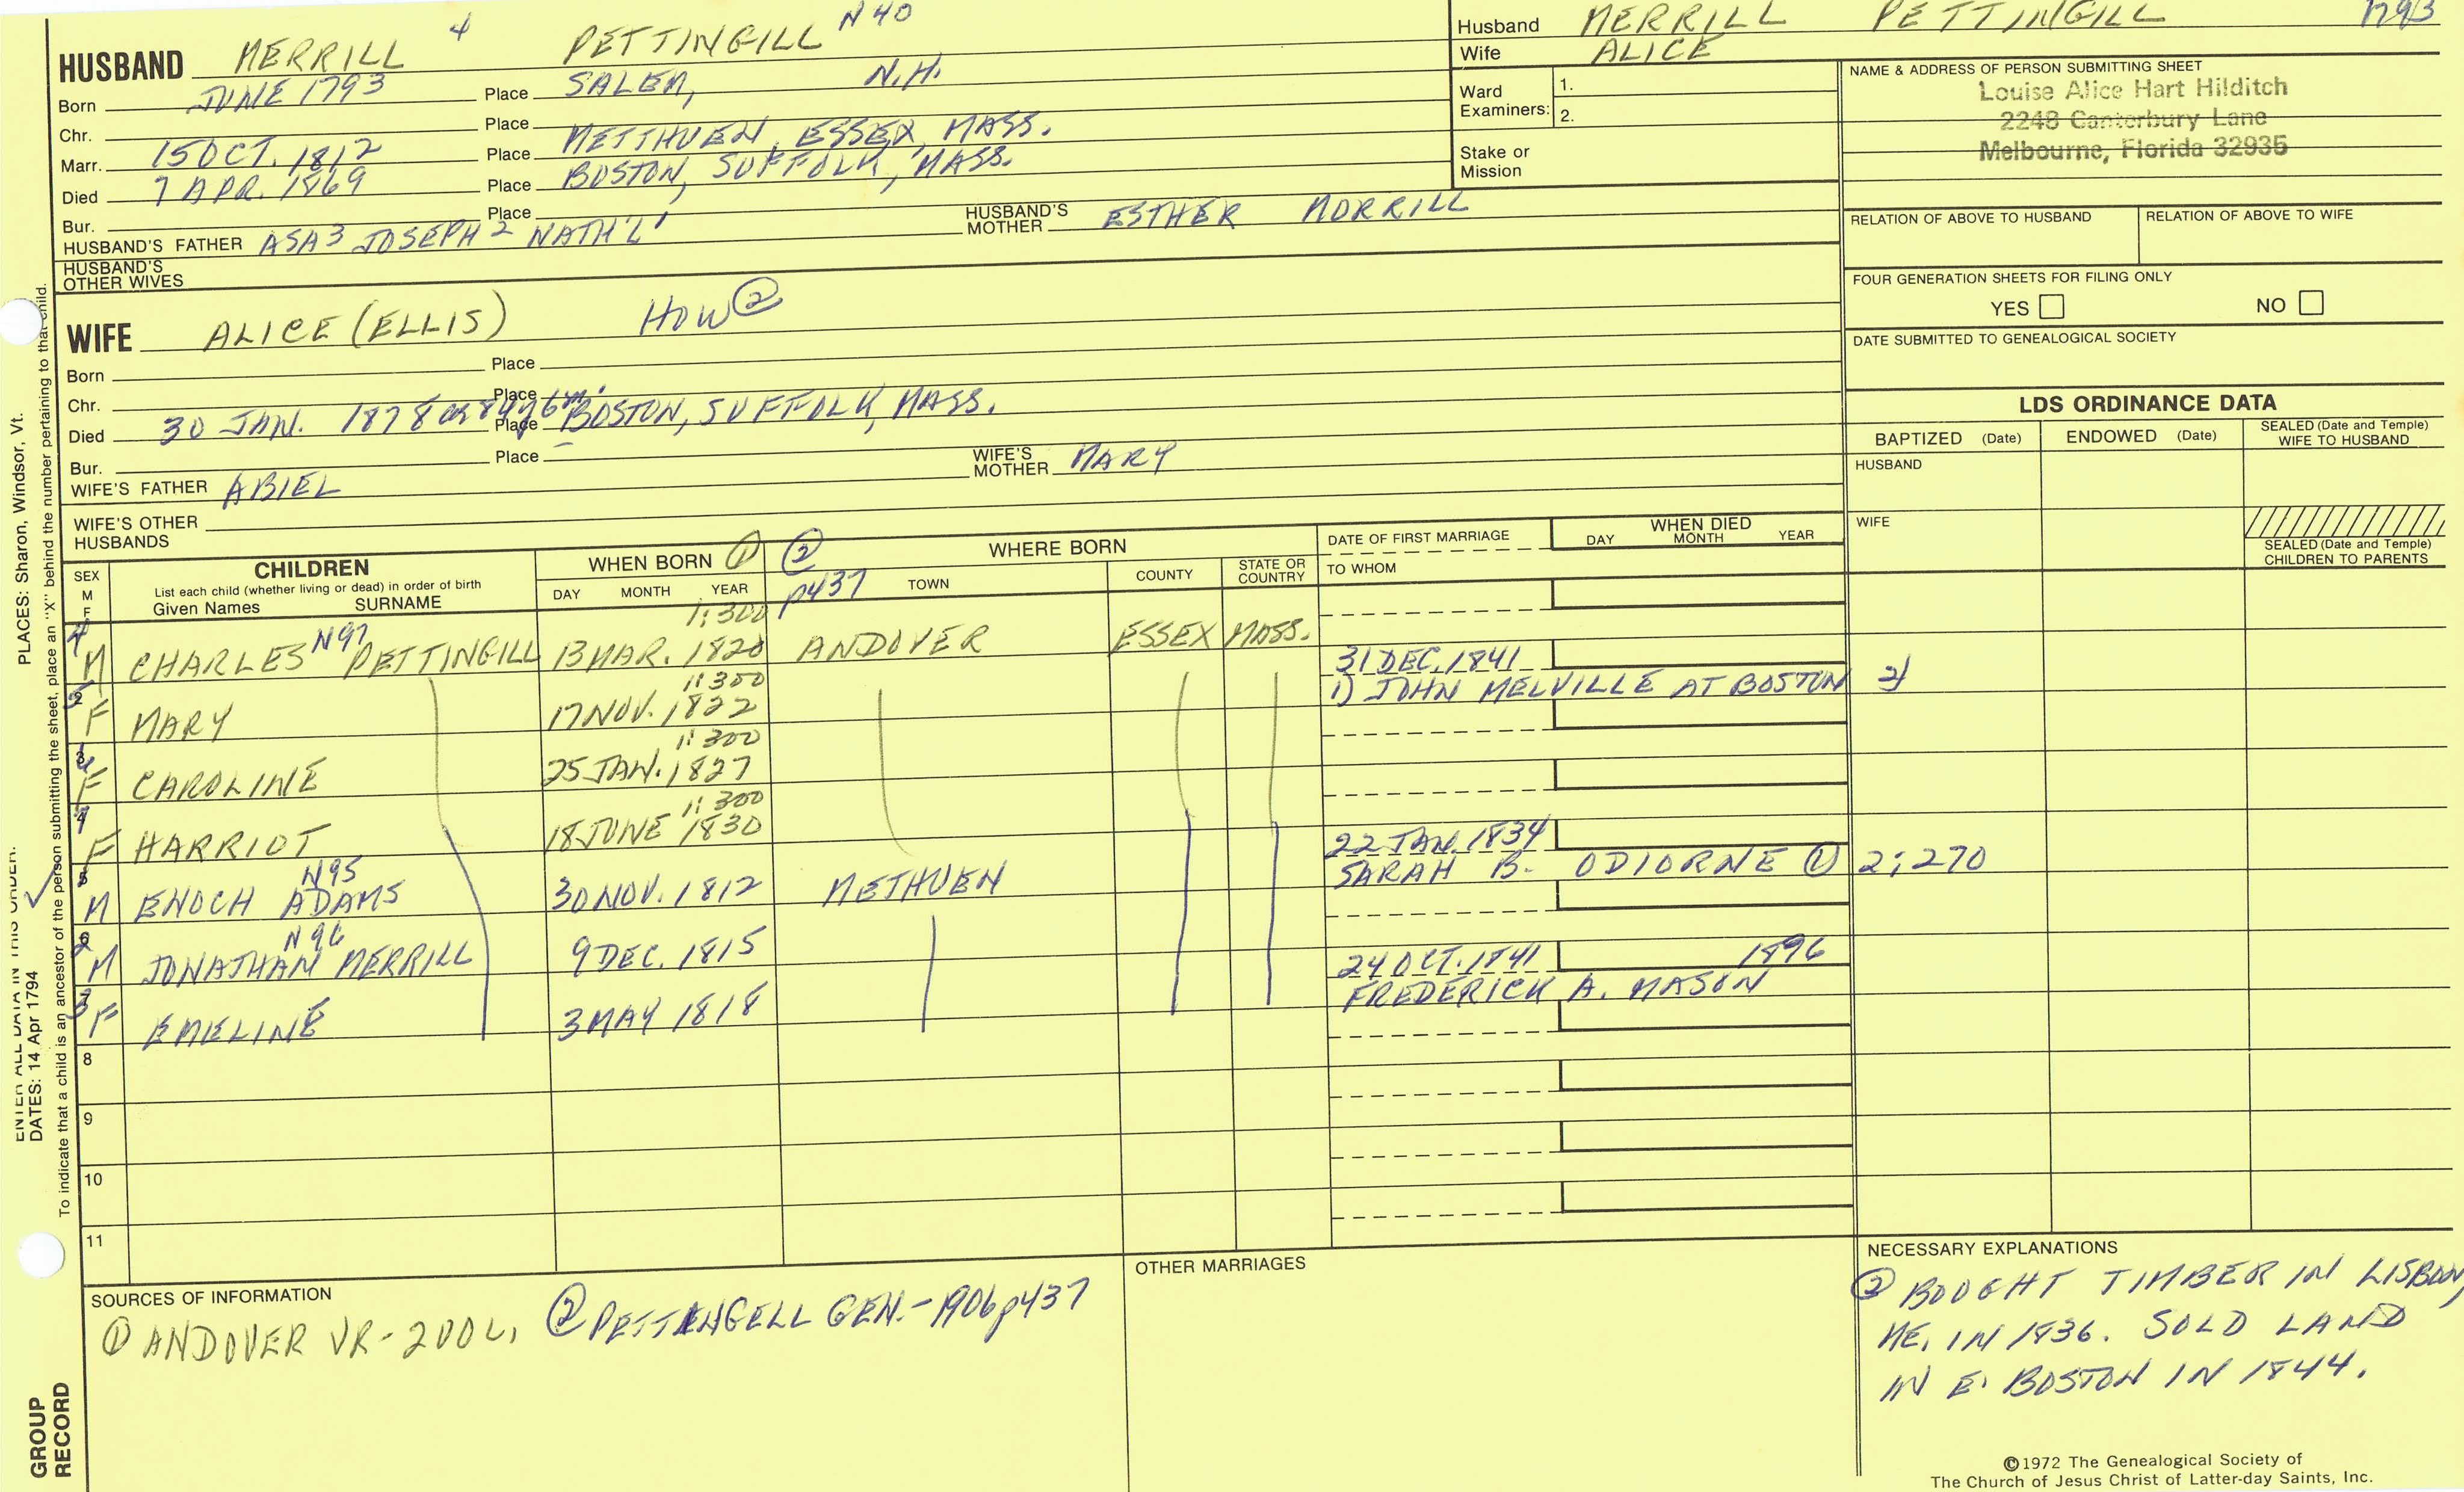 HUSBAND MERRILL 4 PETTINGILL N40
Born JUNE 1793 Place SALEM, N.H.
Chr. Place
Marr. 15 OCT. 1812 Place METHUEN, ESSEX, MASS.
Died 7 APR. 1869 Place BOSTON, SUFFOLK, MASS.
Bur. Place
HUSBAND'S FATHER ASA 3 JOSEPH 2 NATH'L 1 HUSBAND'S MOTHER ESTHER MORRILL
HUSBAND'S OTHER WIVES
Husband MERRILL PETTINGILL 1793
Wife ALICE
Ward Examiners: 1.
2.
Stake or Mission
NAME & ADDRESS OF PERSON SUBMITTING SHEET
Louise Alice Hart Hilditch
2248 Canterbury Lane
Melbourne, Florida 32935
RELATION OF ABOVE TO HUSBAND RELATION OF ABOVE TO WIFE
FOUR GENERATION SHEETS FOR FILING ONLY
YES NO
DATE SUBMITTED TO GENEALOGICAL SOCIETY
WIFE ALICE (ELLIS) HOW ②
Born Place
Chr. Place
Died 30 JAN. 1878 84y 6m Place BOSTON, SUFFOLK, MASS.
Bur. Place
WIFE'S FATHER ABIEL WIFE'S MOTHER MARY
WIFE'S OTHER HUSBANDS
LDS ORDINANCE DATA
BAPTIZED (Date) ENDOWED (Date) SEALED (Date and Temple) WIFE TO HUSBAND
HUSBAND
WIFE
SEALED (Date and Temple) CHILDREN TO PARENTS
SEX M F
CHILDREN
List each child (whether living or dead) in order of birth
Given Names SURNAME
WHEN BORN ①
DAY MONTH YEAR
② p437
WHERE BORN
TOWN COUNTY STATE OR COUNTRY
DATE OF FIRST MARRIAGE
TO WHOM
WHEN DIED
DAY MONTH YEAR
1:300
4 M CHARLES N97 PETTINGILL 13 MAR. 1820 ANDOVER ESSEX MASS.
1:300 31 DEC. 1841
5 F MARY 17 NOV. 1822 1) JOHN MELVILLE AT BOSTON 2)
1:300
6 F CAROLINE 25 JAN. 1827
1:300
7 F HARRIOT 18 JUNE 1830
N95 22 JAN. 1834
M ENOCH ADAMS 30 NOV. 1812 METHUEN SARAH B. ODIORNE ① 2:270
N96
2 M JONATHAN MERRILL 9 DEC. 1815
24 OCT. 1841 1896
3 F EMELINE 3 MAY 1818 FREDERICK A. MASON
8
9
10
11
SOURCES OF INFORMATION
① ANDOVER VR-2VOL, ② PETTINGELL GEN.-1906 p437
OTHER MARRIAGES
NECESSARY EXPLANATIONS
② BOUGHT TIMBER IN LISBON,
ME. IN 1836. SOLD LAND
IN E. BOSTON IN 1844.
©1972 The Genealogical Society of
The Church of Jesus Christ of Latter-day Saints, Inc.
PLACES: Sharon, Windsor, Vt.
ENTER ALL DATA IN THIS ORDER:
DATES: 14 Apr 1794
To indicate that a child is an ancestor of the person submitting the sheet, place an "X" behind the number pertaining to that child.
GROUP
RECORD